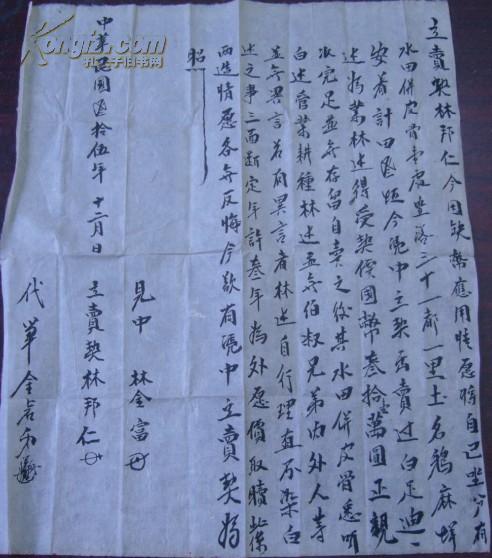 立賣契林邦仁今因缺幣應用情愿將自己坐分有
水田併皮骨壹處坐落三十一都一里土名鵝麻垟
安着計田 今凴中立契出賣过白 迪
述 業林述得受契價國幣叁拾 萬圓正親
收完足並無存留自賣之後其水田併皮骨悉听
白述管業耕種林述並無伯叔兄弟内外人等
並無異言若有異言者林述自行理直不染白
述之事三面断定年許叁年為外愿價取贖此係
两造情愿各無反悔今欲有凴中立賣契為
照
中華民國 拾伍年 十二月 日 立賣契林邦仁
見中 林金富
代筆 全
Kongfz.com
孔夫子旧书网